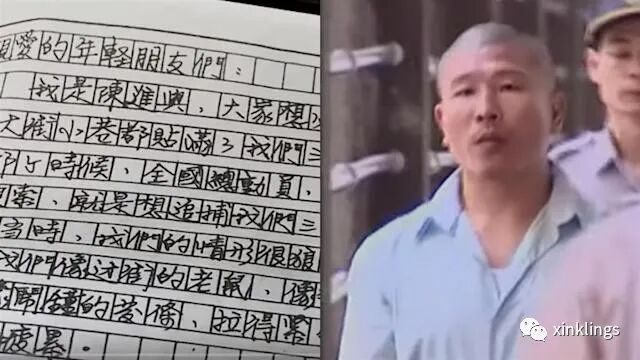 愛的年輕朋友們：
我是陳進興、大家想
大街小巷都貼滿了我們三
時候、全國總動員、
就是想追捕我們三
當時、我們的情形很狼
我們像过街的老鼠、像
鬧鐘的發條、拉得緊
xinklings